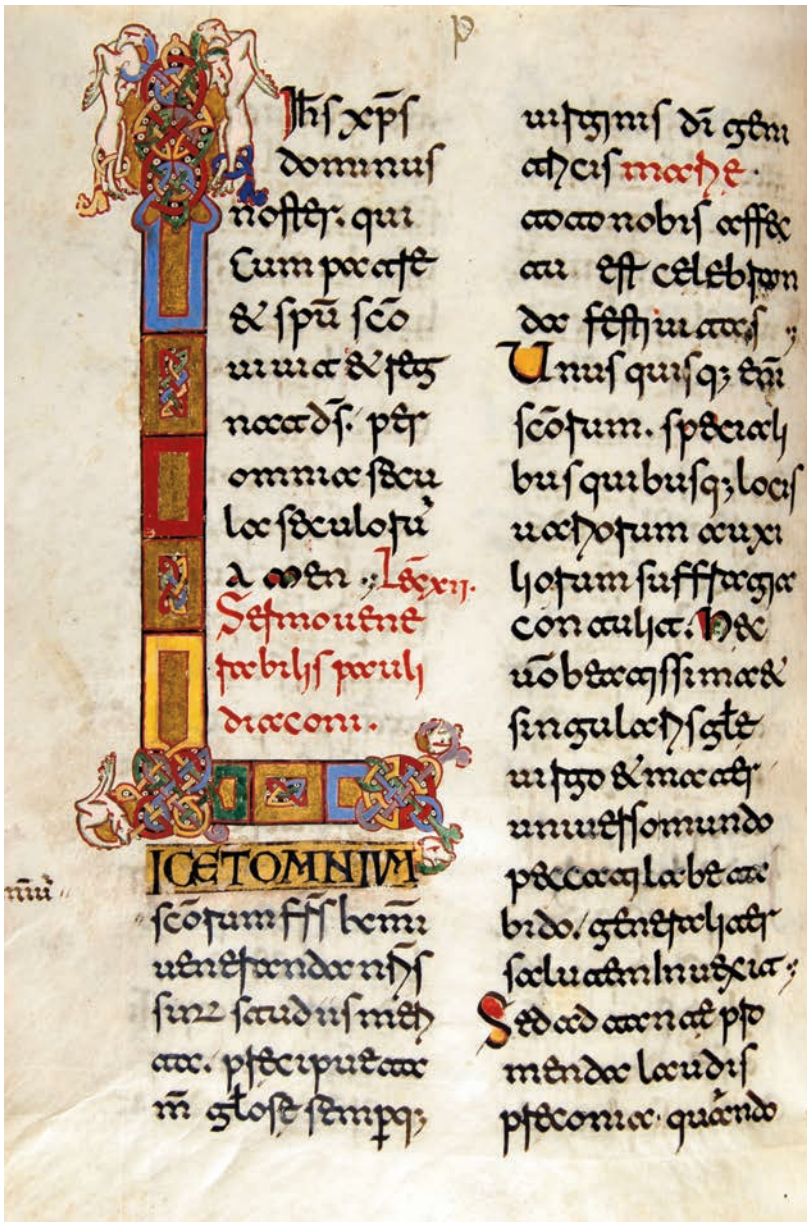 p
Ihs xp̄s
dominus
noster. qui
Cum patre
& spū scō
uiuat & reg
nat ds̄. per
omnia secu
la seculorū
AMEN. Lec̄ xii.
Sermo uene
rabilis pauli
diaconi.
LICET OMNIUM
scōrum frs̄
ueneranda nris̄
sint studiis meri
ta. precipue ta
m̄ glōse semp̱q;
uirginis dī geni
tricis marie.
atoto nobis affec
tu est celebran
da festiuitas
Unus quisq; eni
scōrum. speciali
bus quibusq; locis
uariorum auxi
liorum suffragia
contulit. Nec
uō beatissima &
singularis glē
uirgo & mater
uniuerso mundo
peccati labe ta
bido. generaliter
salutem inuexit
Sed ad tante pro
menda laudis
preconia. quando